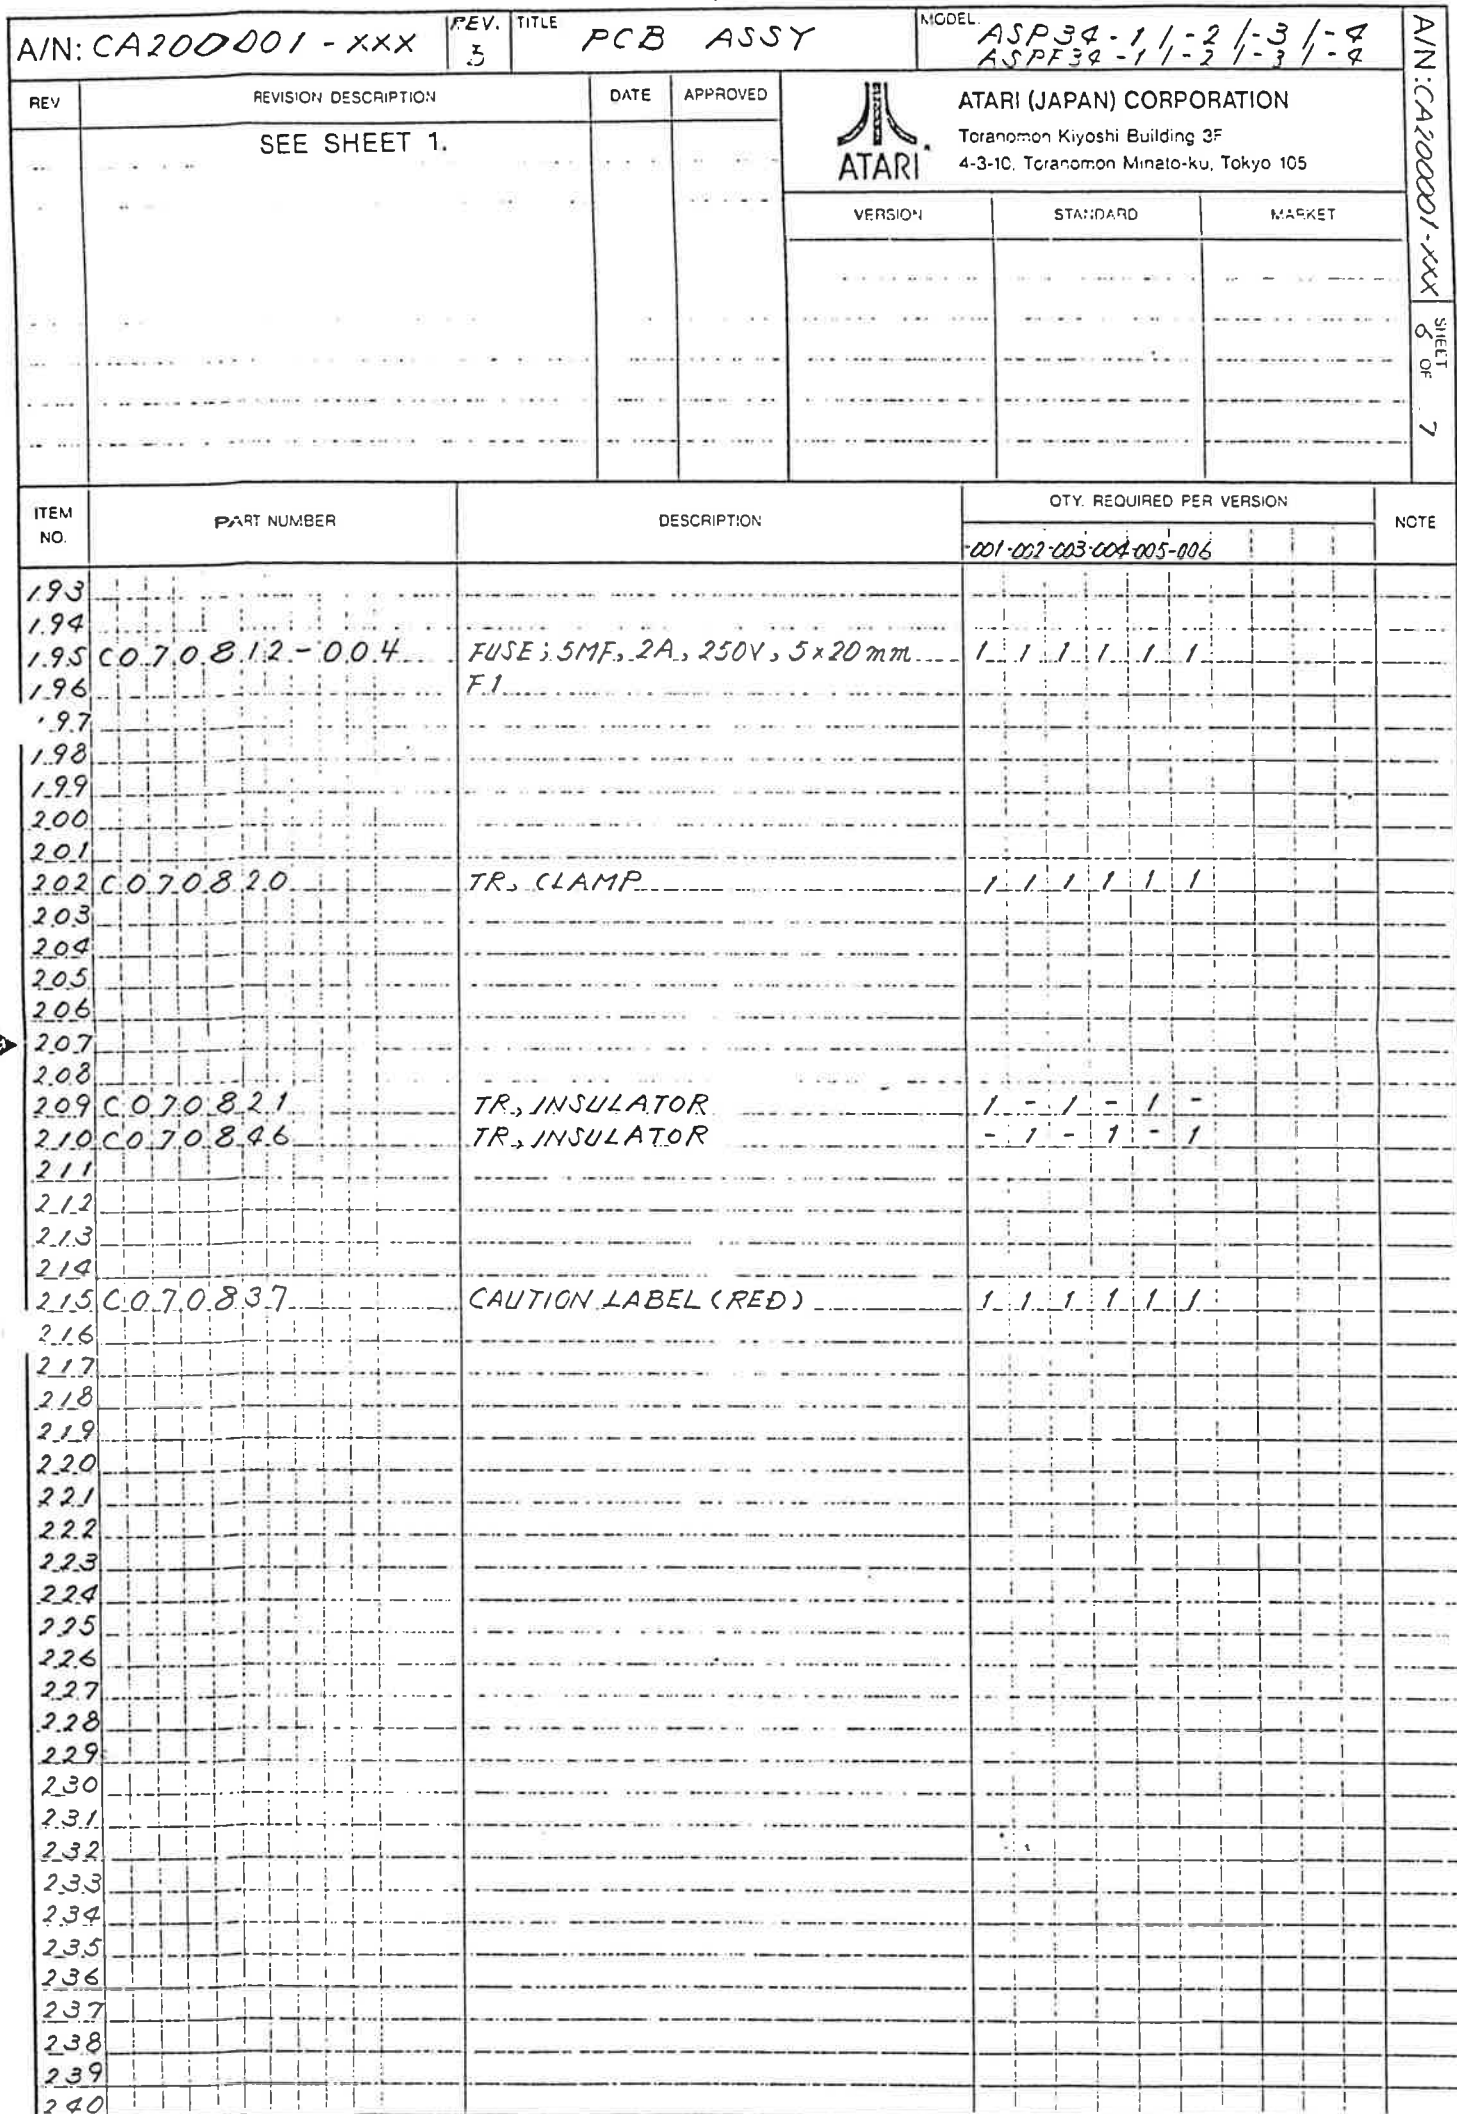 A/N: CA200001-XXX
REV. 3
TITLE PCB ASSY
MODEL. ASP34-1/-2/-3/-4
ASPF34-1/-2/-3/-4
REV REVISION DESCRIPTION DATE APPROVED
SEE SHEET 1.
ATARI
ATARI (JAPAN) CORPORATION
Toranomon Kiyoshi Building 3F
4-3-10, Toranomon Minato-ku, Tokyo 105
VERSION STANDARD MARKET
A/N: CA200001-XXX
SHEET 6 OF 7
ITEM NO. PART NUMBER DESCRIPTION QTY. REQUIRED PER VERSION NOTE
-001-002-003-004-005-006
193
194
195 C070812-004 FUSE; 5MF, 2A, 250V, 5x20mm 1 1 1 1 1 1
196 F1
197
198
199
200
201
202 C070820 TR, CLAMP 1 1 1 1 1 1
203
204
205
206
207
208
209 C070821 TR, INSULATOR 1 - 1 - 1 -
210 C070846 TR, INSULATOR - 1 - 1 - 1
211
212
213
214
215 C070837 CAUTION LABEL (RED) 1 1 1 1 1 1
216
217
218
219
220
221
222
223
224
225
226
227
228
229
230
231
232
233
234
235
236
237
238
239
240